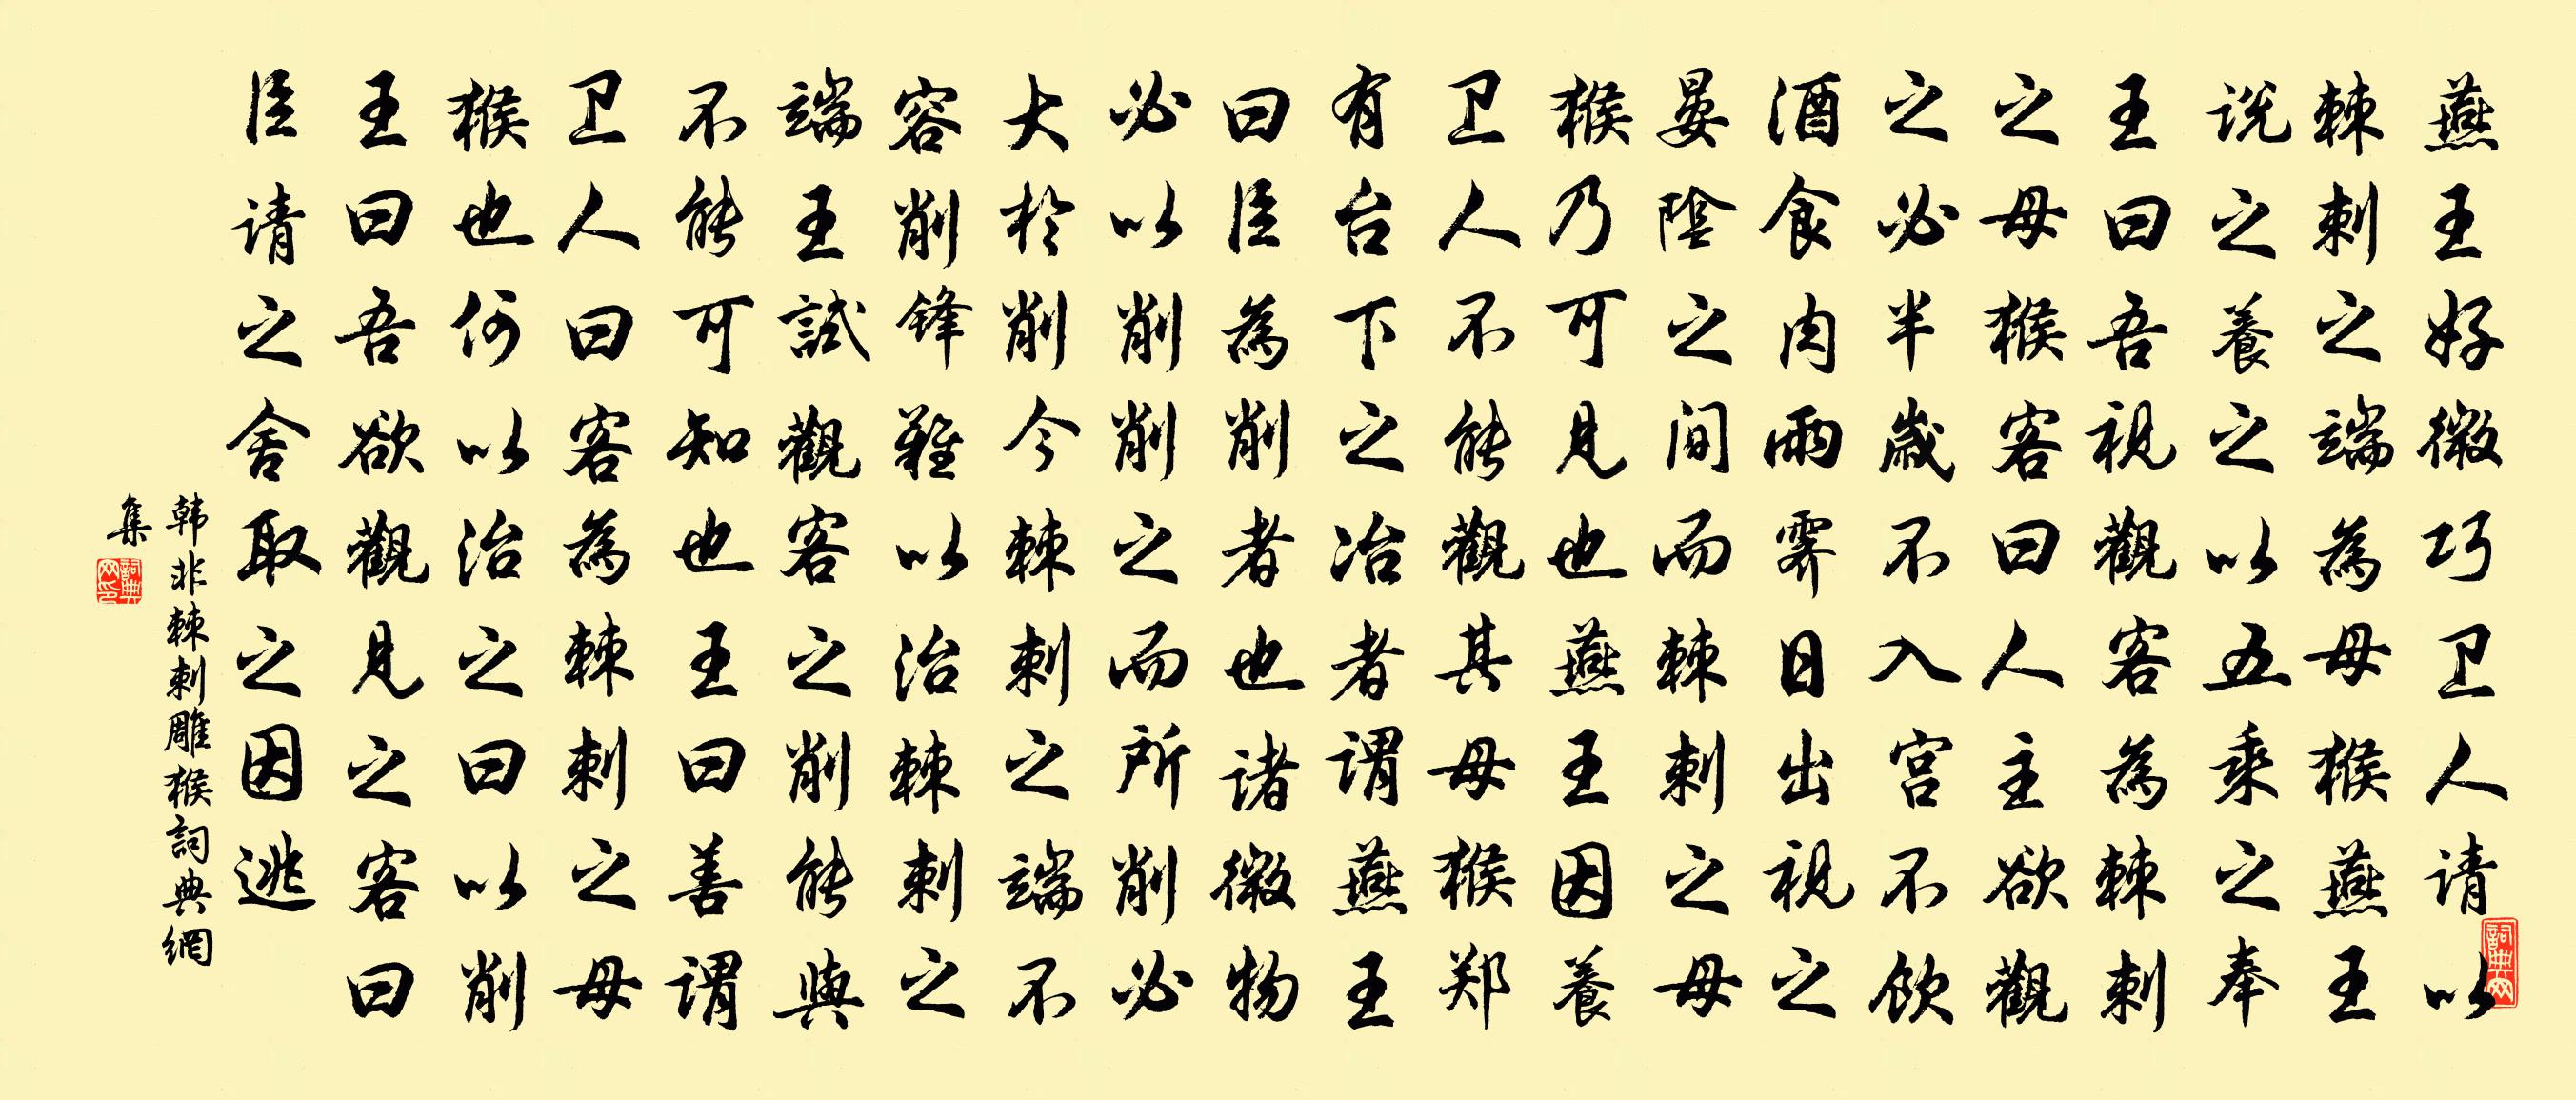 燕王好微巧卫人请以
棘刺之端為母猴燕王
说之養之以五乘之奉
王曰吾視觀客為棘刺
之母猴客曰人主欲觀
之必半歲不入宫不飲
酒食肉雨霁日出視之
晏陰之间而棘刺之母
猴乃可見也燕王因養
卫人不能觀其母猴郑
有台下之冶者謂燕王
曰臣為削者也诸微物
必以削削之而所削必
大於削今棘刺之端不
容削锋難以治棘刺之
端王試觀客之削能與
不能可知也王曰善謂
卫人曰客為棘刺之母
猴也何以治之曰以削
王曰吾欲觀見之客曰
臣请之舍取之因逃
韩非棘刺雕猴詞典網
集
詞典網
詞典網印